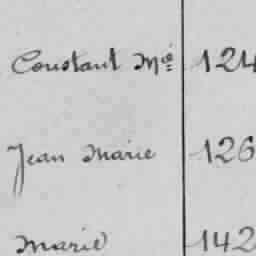 Constant Mé 124
Jean Marie 126
Marie 142